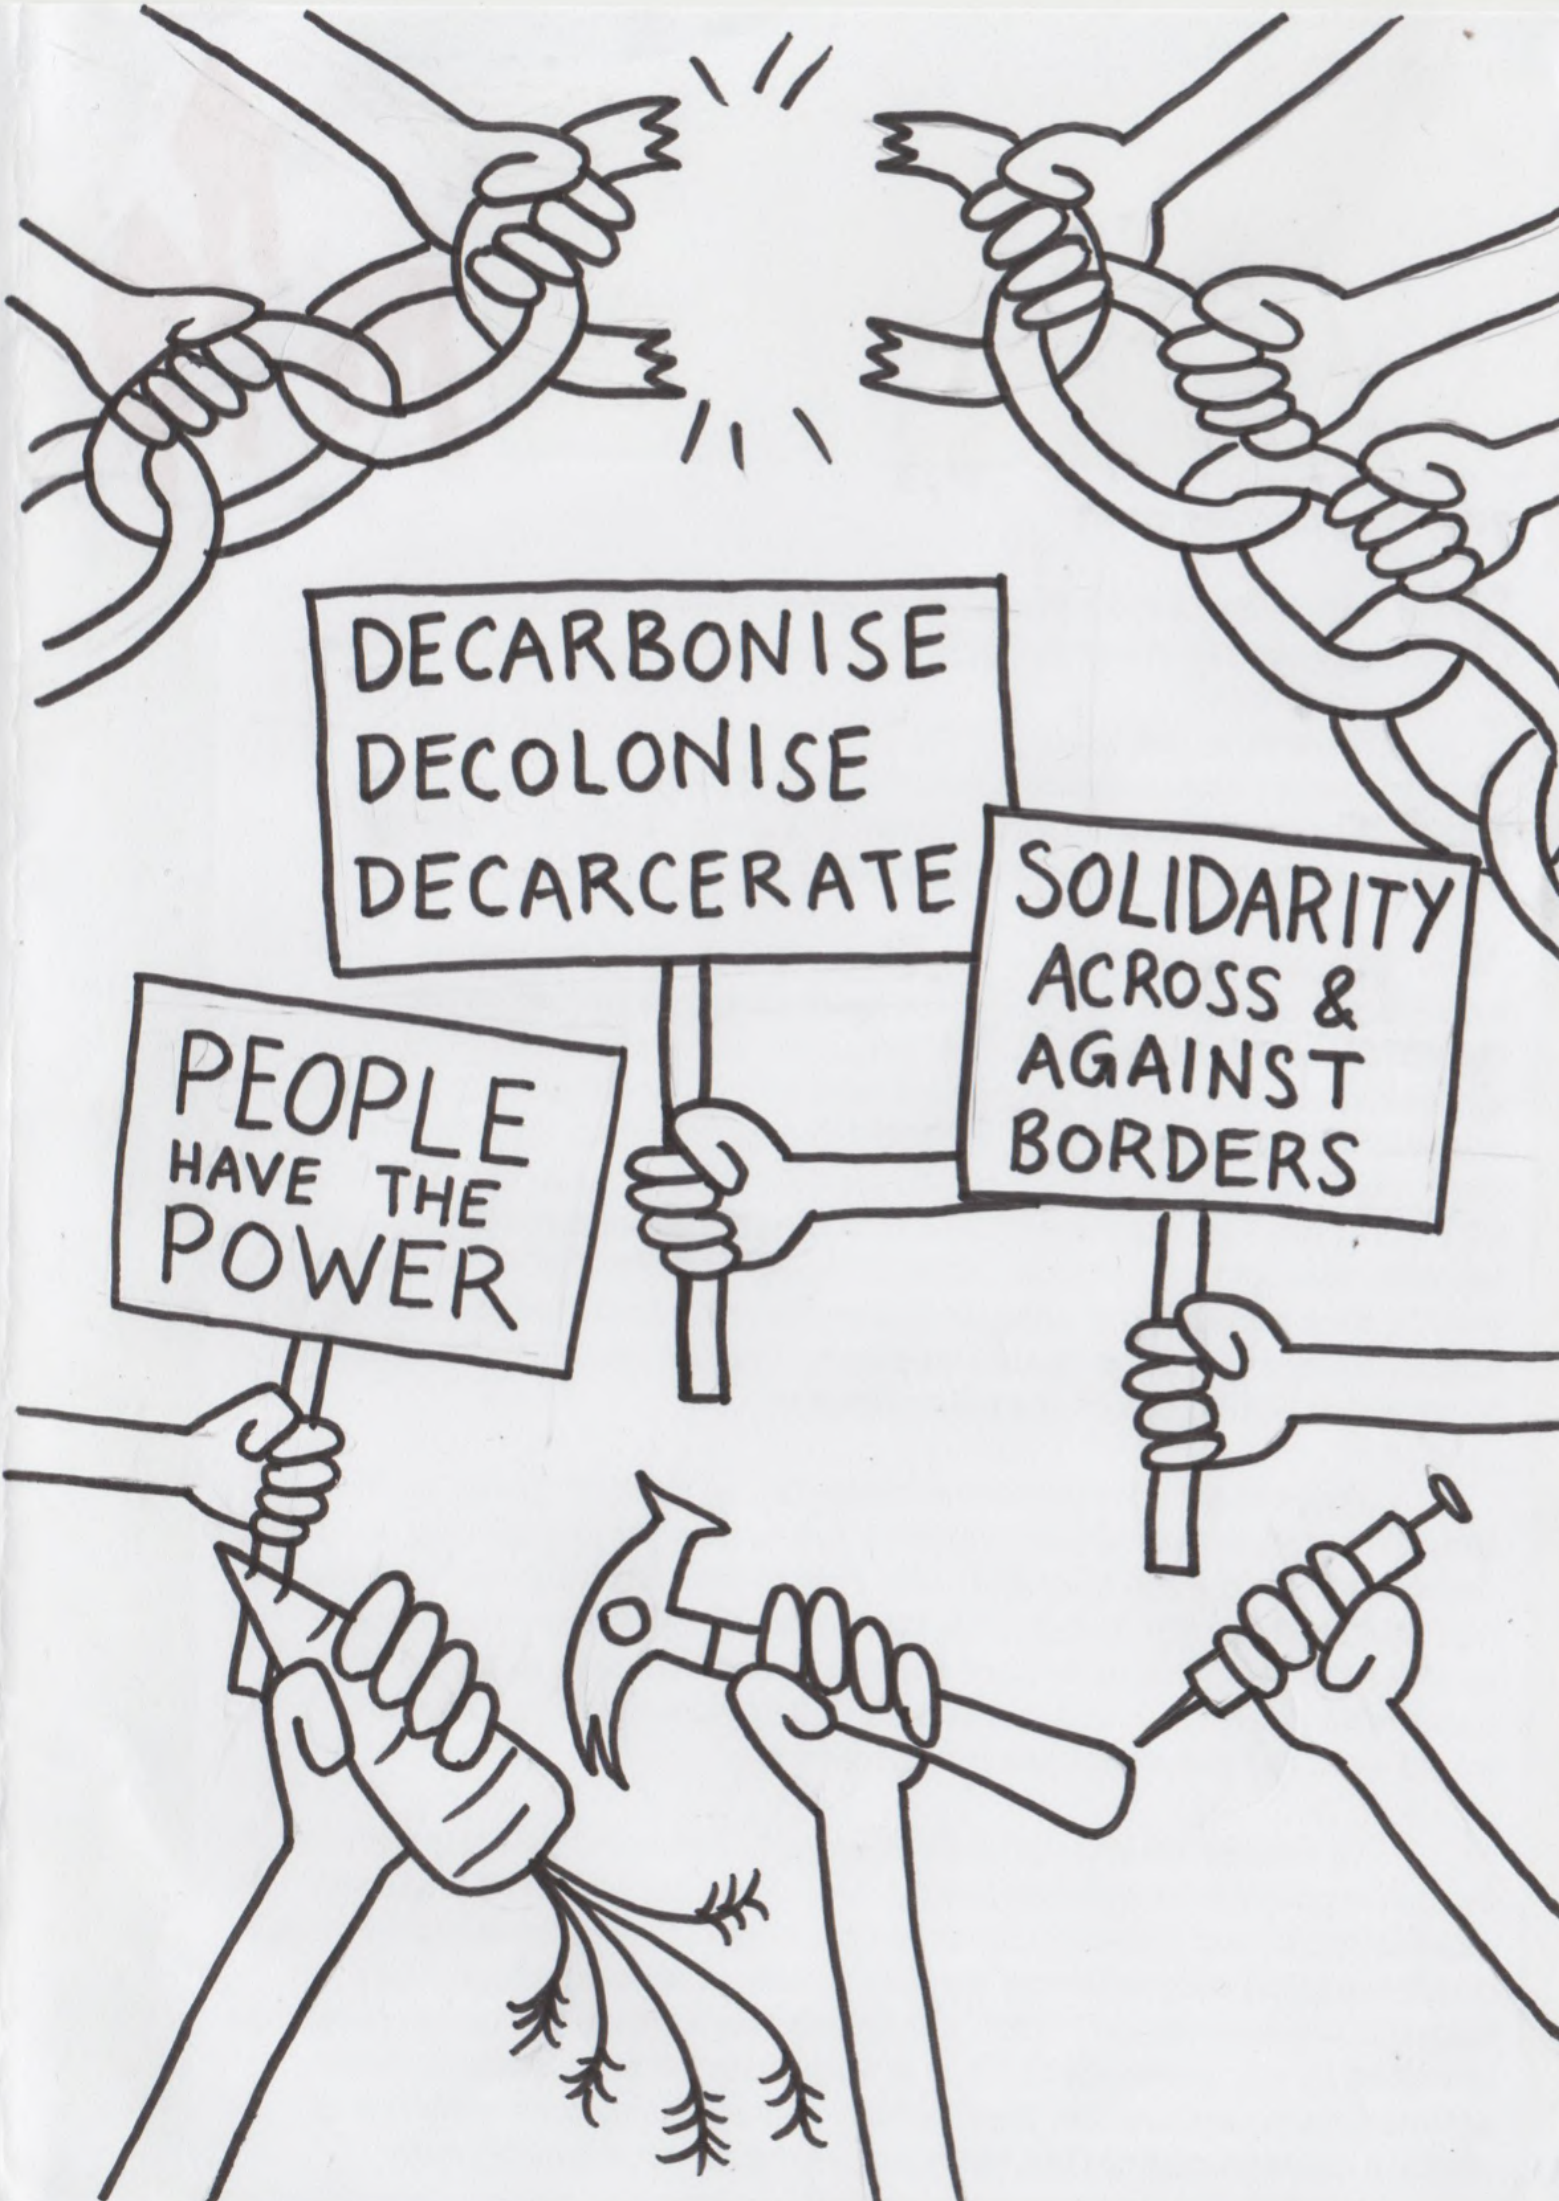 DECARBONISE
DECOLONISE
DECARCERATE
SOLIDARITY
ACROSS &
AGAINST
BORDERS
PEOPLE
HAVE THE
POWER